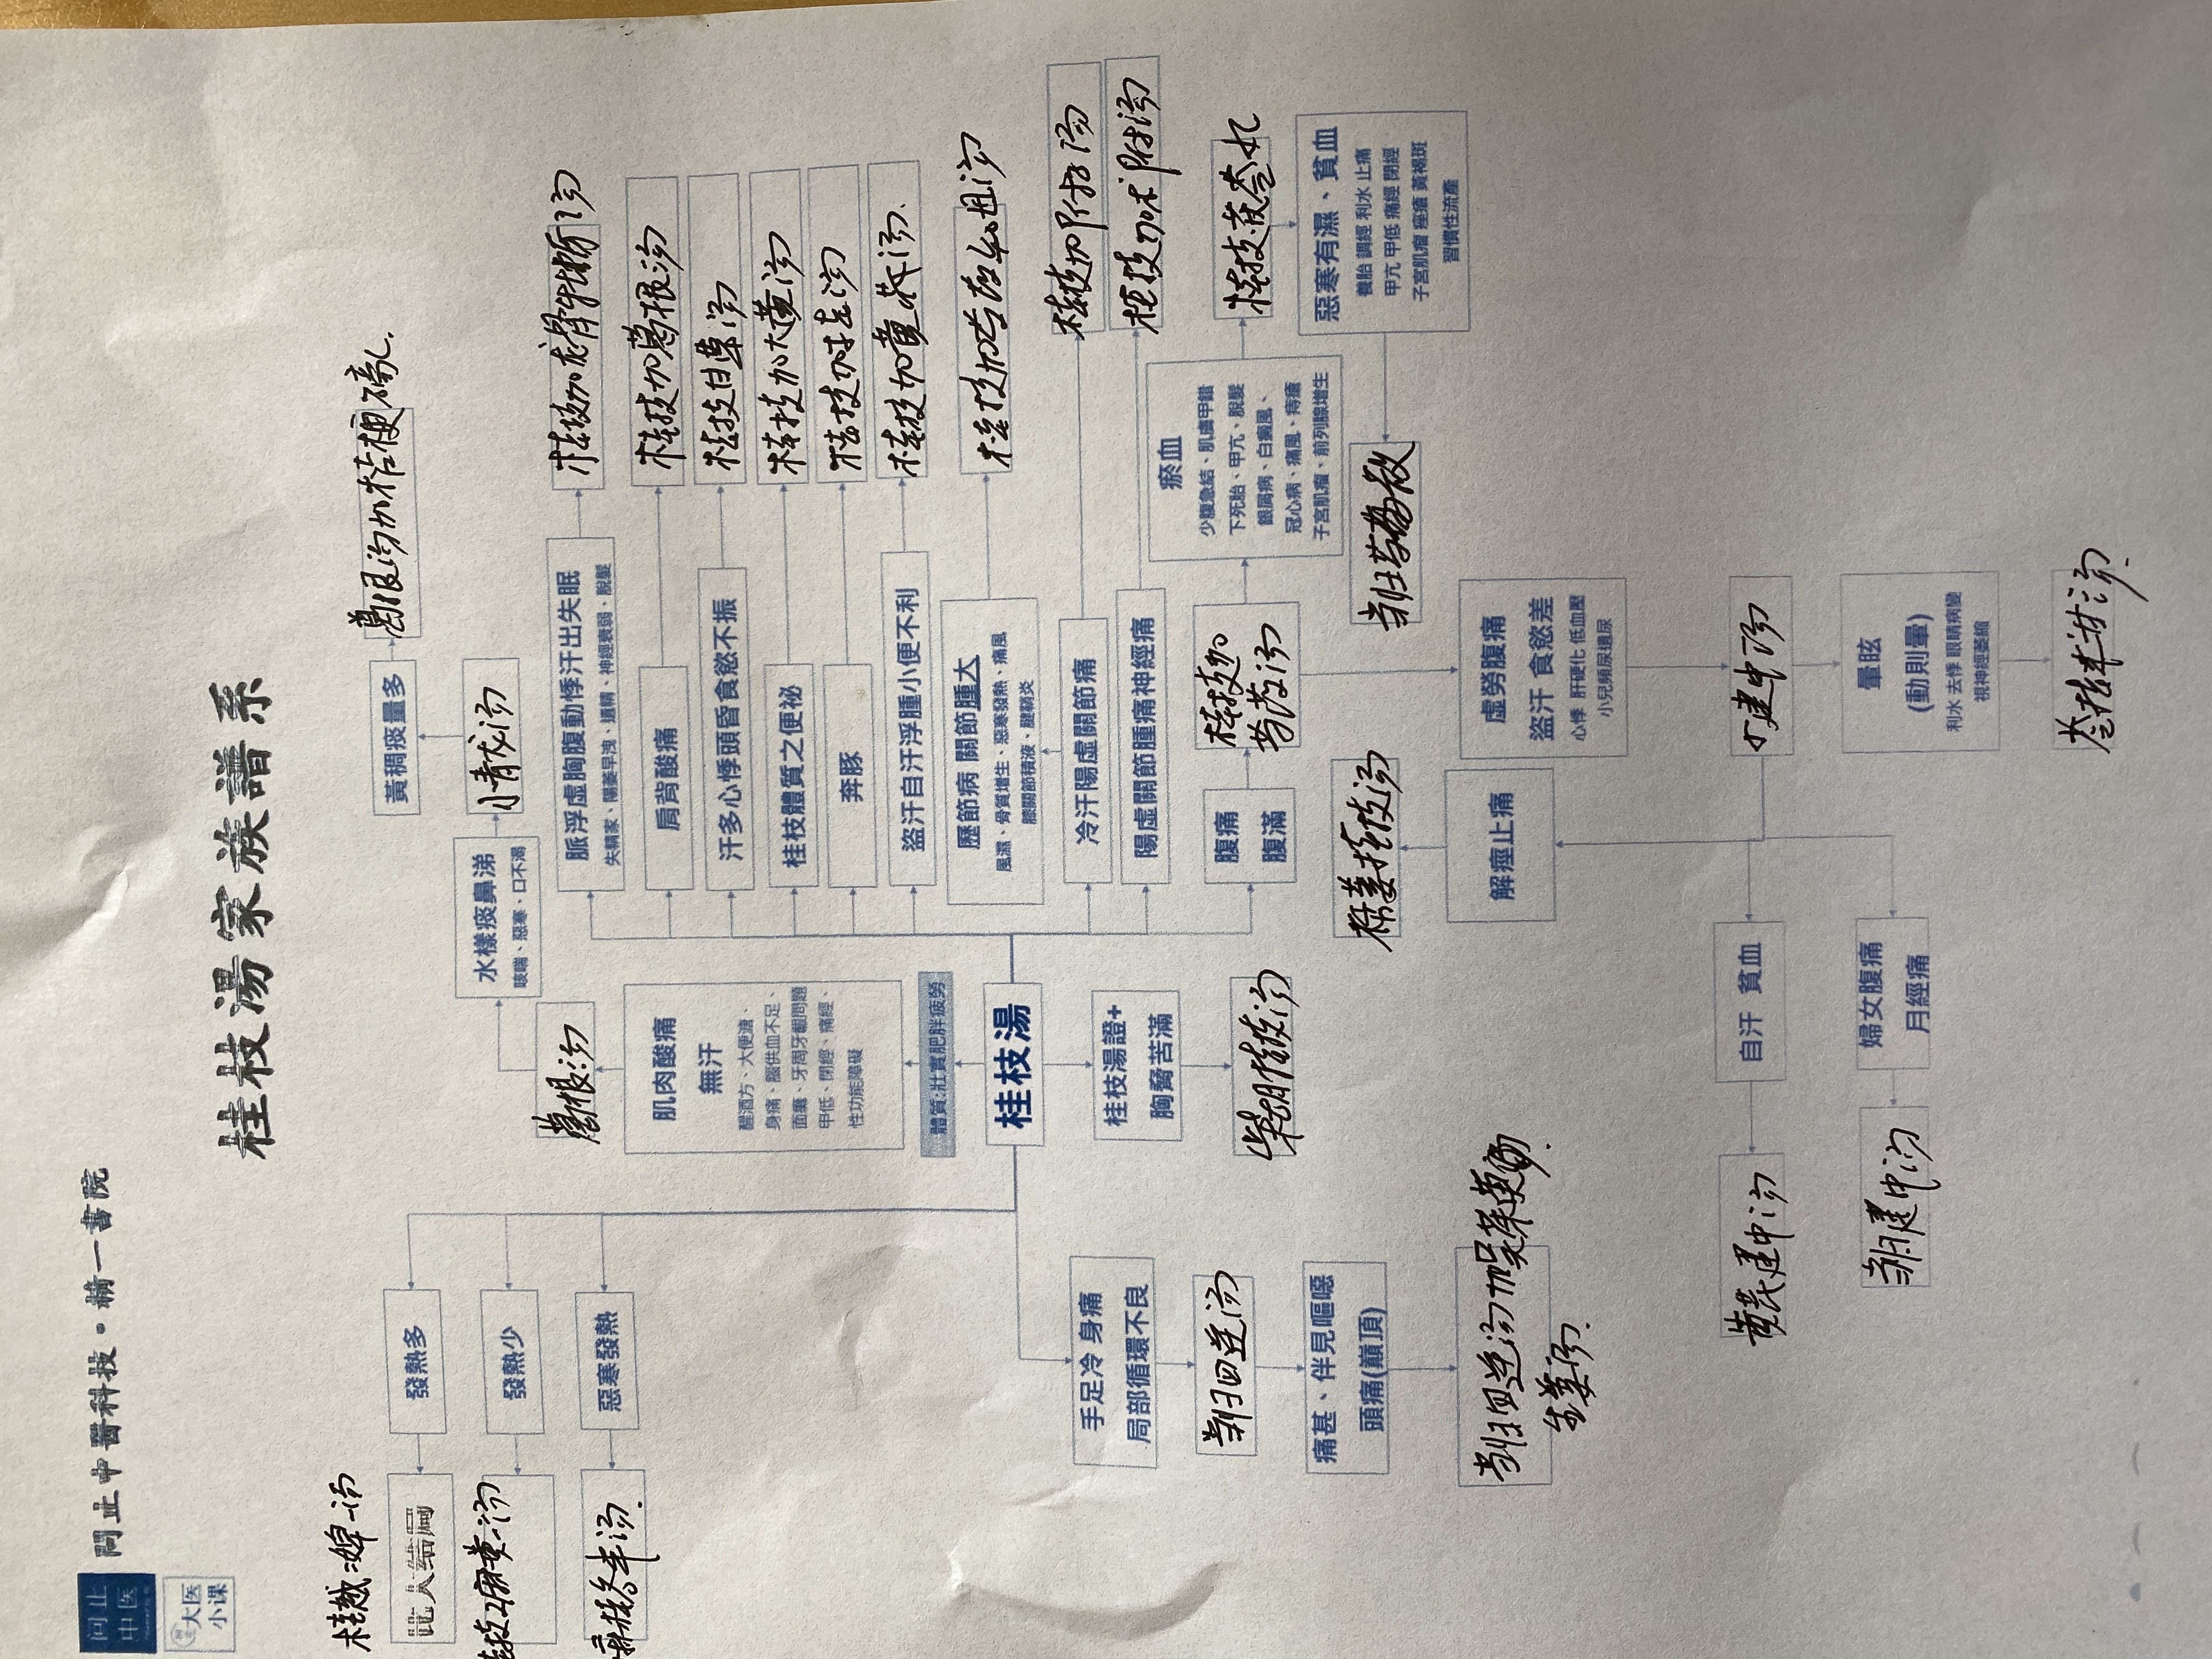 問止中醫科技·精一書院
问止
中医
大医
小课
桂枝湯家族譜系
黃稠痰量多
葛根汤加桔梗
水樣痰鼻涕
咳喘、惡寒、口不渴
小青龙汤
葛根汤
肌肉酸痛
無汗
醒酒方、大便溏、
身痛、腦供血不足、
面癱、牙周牙齦問題
甲低、閉經、痛經、
性功能障礙
體質:壯實肥胖疲勞
桂枝湯
發熱多
發熱少
惡寒發熱
桂枝2麻黄一汤
麻桂各半汤.
脈浮虛胸腹動悸汗出失眠
失精家、陽萎早洩、遺精、神經衰弱、脫髮
桂枝加龙骨牡蛎汤
肩背酸痛
桂枝加葛根汤
汗多心悸頭昏食慾不振
桂枝甘草汤
桂枝體質之便祕
桂枝加大黄汤
奔豚
桂枝加桂汤
盜汗自汗浮腫小便不利
桂枝加黄芪汤.
歷節病 關節腫大
風濕、骨質增生、惡寒發熱、痛風
膝關節積液、腱鞘炎
桂枝加芍药知母汤
冷汗陽虛關節痛
桂枝加附子汤
陽虛關節腫痛神經痛
桂枝加术附汤
腹痛
腹滿
桂枝加
芍药汤
瘀血
少腹急結、肌膚甲錯
下死胎、甲亢、脫髮
銀屑病、白癜風、
冠心病、痛風、痔瘡
子宮肌瘤、前列腺增生
桂枝茯苓丸
惡寒有濕、貧血
養胎 調經 利水 止痛
甲亢 甲低 痛經 閉經
子宮肌瘤 痤瘡 黃褐斑
習慣性流產
当归芍药散
桂枝湯證+
胸脅苦滿
柴胡桂枝汤
手足冷 身痛
局部循環不良
当归四逆汤
痛甚、伴見嘔噁
頭痛(巔頂)
当归四逆汤加吴茱萸
生姜汤.
虛勞腹痛
盜汗 食慾差
心悸 肝硬化 低血壓
小兒頻尿遺尿
小建中汤
解痙止痛
自汗 貧血
黄芪建中汤
婦女腹痛
月經痛
当归建中汤
暈眩
(動則暈)
利水 去悸 眼睛病變
視神經萎縮
苓桂术甘汤.